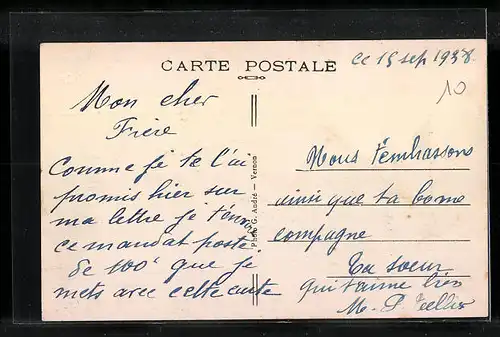 CARTE POSTALE
Ce 15 sep 1938.
10
Mon cher
Frère
Comme je te l'ai
promis hier sur
ma lettre je t'envoi
ce mandat poste
de 100f que je
mets avec cette carte
Photo G. André — Vernon
Nous t'embrassons
ainsi que ta bonne
compagne
Ta soeur
qui t'aime bien
M. L. Tellier